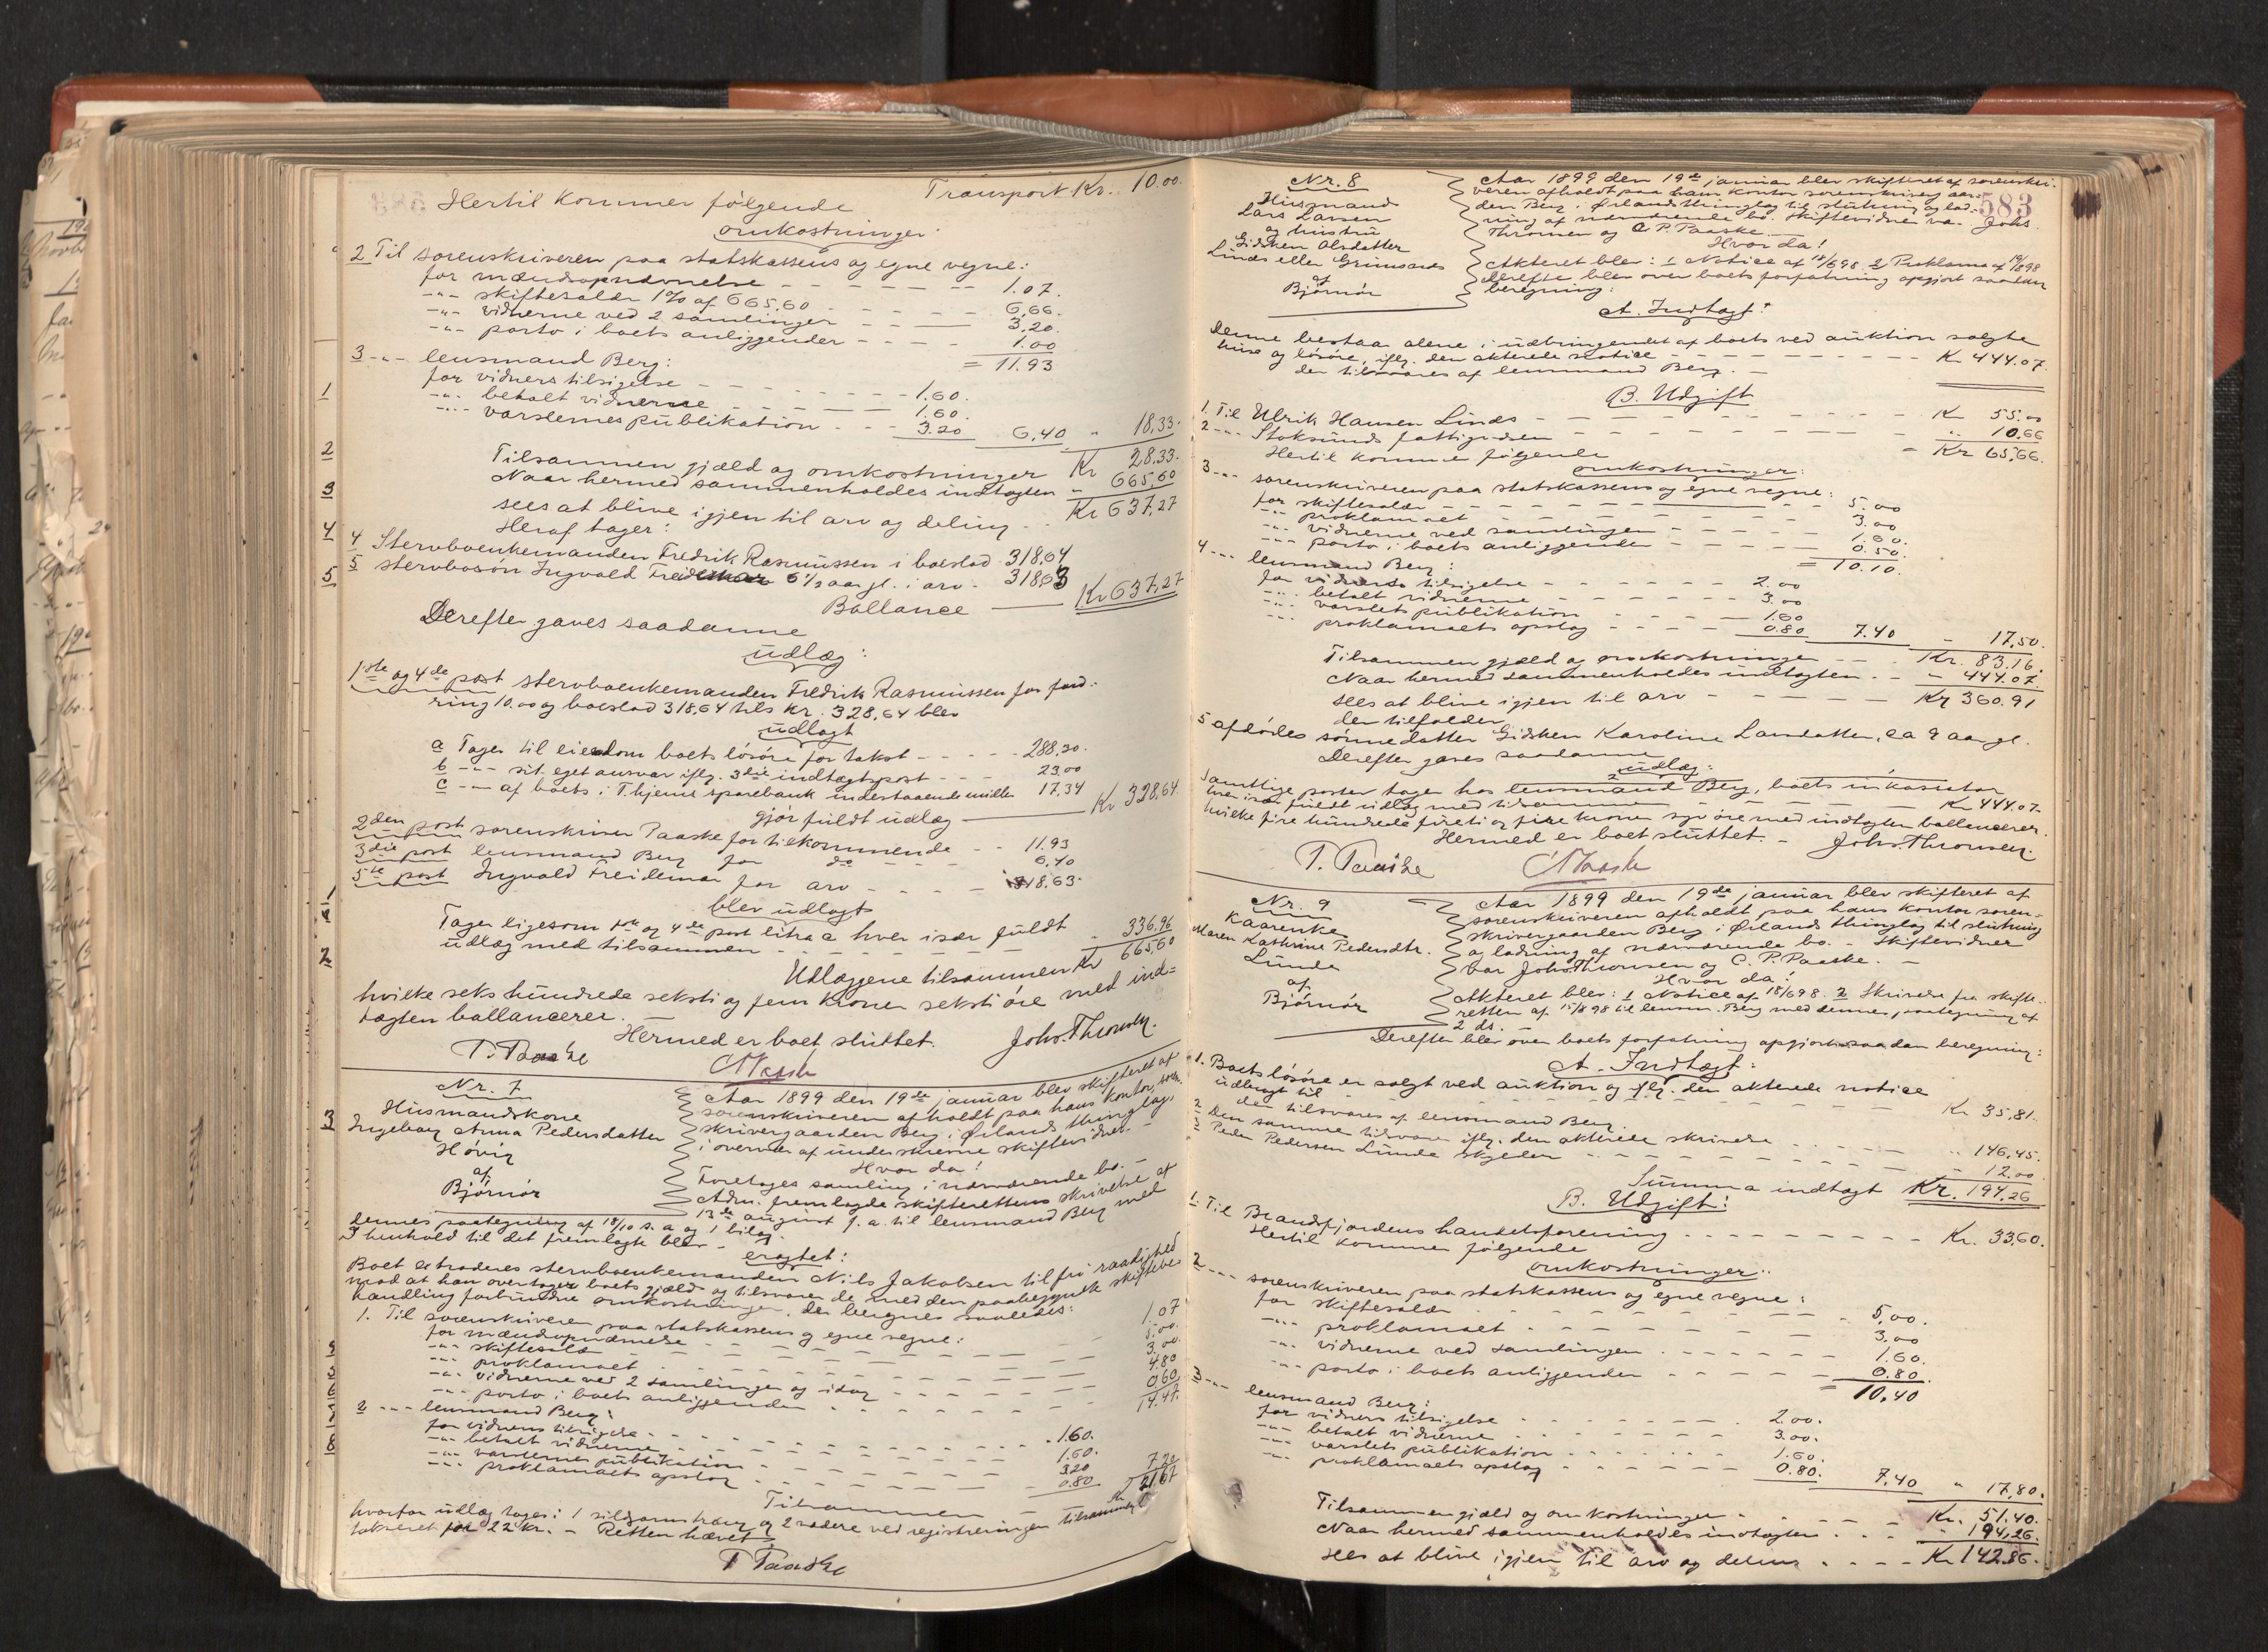 Transport Kr. 10.00.
Hertil kommer følgende
omkostninger:
2 Til sorenskriveren paa statskassens og egne vegne:
for mændsopnævnelse - - - 1.07.
-"- skiftesalær 1% af 665,60 - - - 6,66.
-"- vidnerne ved 2 samlinger - - - 3,20.
-"- porto i boets anliggender - - - 1.00
= 11.93
3 -"- lensmand Berg:
for vidners tilsigelse - - - 1.60.
-"- betalt vidnerne - - - 1.60.
-"- varslernes publikation - - - 3.20 6,40 " 18,33.
Tilsammen gjæld og omkostninger Kr 28,33.
Naar hermed sammenholdes indtægten " 665,60
sees at blive igjen til arv og deling - - Kr 637,27
Heraf tager:
4 Stervboenkemanden Fredrik Rasmussen i boeslod 318,64
5 stervbosøn Ingvald Freidemar 6½ aar gl. i arv - 318,63 Kr 637,27
Ballance
Derefter gaves saadanne
udlæg:
1ste og 4de post stervboenkemanden Fredrik Rasmussen for ford-
ring 10,00 og boeslod 318,64 tils kr. 328,64 blev
udlagt
a Tager til eiendom boets løsøre for takst - - - 288,30.
b -"- sit eget ansvar iflg. 3die indtægtspost - - - 23,00
c -"- af boets i T.hjems sparebank indestaaende midler 17,34
gjør fuldt udlæg Kr 328,64
2den post sorenskriver Paaske for tilkommende - - 11.93
3die post lensmand Berg for do - - - 6,40
5te post Ingvald Freidemar for arv - - - 318.63.
blev udlagt
Tager ligesom 1ste og 4de post litra a hver især fuldt
udlæg med tilsammen - - - " 336,96
Udlæggene tilsammen Kr 665,60
hvilke seks hundrede seksti og fem kroner seksti øre med ind=
tægten ballancerer.
Hermed er boet sluttet. Johs. Thronsen.
P. Paaske CPPaaske
Nr. 7
Husmandskone
Ingeborg Anna Pedersdatter
Høvig
af
Bjørnør
Aar 1899 den 19de januar blev skifteret af
sorenskriveren afholdt paa hans kontor, soren-
skrivergaarden Berg i Ørlands thinglag,
i overvær af underskrevne skiftevidner. -
Hvor da!
Foretages samling i nærværende bo. -
Adm. fremlagde skifterettens skrivelse af
13de august f. a. til lensmand Berg med
dennes paategning af 18/10 s. a. og 1 bilag.
I henhold til det fremlagte blev
eragtet:
Boet extraderes stervboenkemanden Nils Jakobsen til fri raadighed
mod at han overtager boets gjæld og tilsvarer de med den paabegyndte skiftebe
handling forbundne omkostninger, der beregnes saaledes:
1. Til sorenskriveren paa statskassens og egne vegne:
for mændsopnævnelse - - - 1.07
-"- skiftesalær - - - 5.00.
-"- proklamaet - - - 3.00.
-"- vidnerne ved 2 samlinger og idag - - - 4.80
-"- porto i boets anliggender - - - 0.60
14.47.
2 -"- lensmand Berg:
for vidners tilsigelse - - - 1.60.
-"- betalt vidnerne - - - 1.60.
-"- varslernes publikation - - - 3.20
-"- proklamaets opslag - - - 0.80 7.20
Tilsammen - Kr 21.67
hvorfor udlæg tages i 1 sildgarnstræng og 2 vædere ved registreringen tilsammen
takseret for 22 kr. - Retten hævet
P Paaske
583
Nr. 8
Husmand
Lars Larsen
og hustru
Gidsken Olsdatter
Linds eller Grimsæds
af
Bjørnør
Aar 1899 den 19de januar blev skifteret af sorenskri-
veren afholdt paa hans kontor sorenskrivergaar-
den Berg i Ørlands thinglag til slutning og lad-
ning af nærværende bo. Skiftevidner var Johs.
Thronsen og C. P. Paaske. -
Hvor da!
Akteret blev: 1 Notice af 14/6 98 2 Proklama af 14/1898
derefter blev over boets forfatning opgjort saadan
beregning:
A. Indtægt:
Denne bestaar alene i udbringendet af boets ved auktion solgte
huse og løsøre, iflg. den akterede notice - - - Kr 444.07.
der tilsvares af lensmand Berg. -
B. Udgift
1. Til Ulrik Hansen Linds - - - Kr 55.00
2 -"- Stoksunds fattigvæsen - - - " 10.66
Hertil kommer følgende = Kr 65,66.
omkostninger:
3 -"- sorenskriveren paa statskassens og egne vegne:
for skiftesalær - - - 5.00
-"- proklamaet - - - 3.00
-"- vidnerne ved samlingen - - - 1.60.
-"- porto i boets anliggender - - - 0.50.
= 10.10.
4 -"- lensmand Berg:
for vidners tilsigelse - - - 2.00
-"- betalt vidnerne - - - 3.00
-"- varslets publikation - - - 1.60
-"- proklamaets opslag - - - 0.80 7.40 " 17,50.
Tilsammen gjæld og omkostninger - - - Kr. 83.16.
Naar hermed sammenholdes indtægten - - " 444.07
sees at blive igjen til arv - - - Kr 360.91
der tilfalder
5 afdødes sønnedatter Gidsken Karoline Larsdatter, ca 9 aar gl.
Derefter gaves saadanne
udlæg:
Samtlige poster tager hos lensmand Berg, boets inkassator
hver især fuldt udlæg med tilsammen - - - Kr 444.07.
hvilke fire hundrede firti og fire kroner syv øre med indtægten ballancerer.
Hermed er boet sluttet. - Johs. Thronsen.
P. Paaske CPPaaske
Nr. 9
Kaarenke
Maren Kathrine Pedersdtr.
Lunde
af
Bjørnør
Aar 1899 den 19de januar blev skifteret af
sorenskriveren afholdt paa hans kontor soren-
skrivergaarden Berg i Ørlands thinglag til slutning
og ladning af nærværende bo. - Skiftevidner
var Johs. Thronsen og C. P. Paaske. -
Hvor da!
Akteret blev: 1 Notice af 18/6 98. 2 Skrivelse fra skifte-
retten af 15/8 98 til lensm. Berg med dennes paategning af
2 ds. -
Derefter blev over boets forfatning opgjort saadan beregning:
A. Indtægt:
1. Boets løsøre er solgt ved auktion og iflg. den akterede notice
udbragt til - - - Kr 35,81.
der tilsvares af lensmand Berg.
2 Den samme tilsvarer iflg. den akterede skrivelse - - - " 146,45.
3 Peder Pedersen Lunde skylder - - - " 12.00
Summa indtægt Kr. 194,26
B. Udgift:
1. Til Brandsfjordens handelsforening - - - Kr. 33,60.
Hertil kommer følgende
omkostninger:
2 -"- sorenskriveren paa statskassens og egne vegne:
for skiftesalær - - - 5,00.
-"- proklamaet - - - 3.00
-"- vidnerne ved samlingen - - - 1.60.
-"- porto i boets anliggender - - - 0.80.
= 10,40
3 -"- lensmand Berg:
for vidners tilsigelse - - - 2.00.
-"- betalt vidnerne - - - 3.00.
-"- varslets publikation - - - 1.60.
-"- proklamaets opslag - - - 0.80. 7,40 " 17,80.
Tilsammen gjæld og omkostninger - - - Kr. 51.40.
Naar hermed sammenholdes indtægten - - - " 194,26.
sees at blive igjen til arv og deling - - - Kr 142.86.